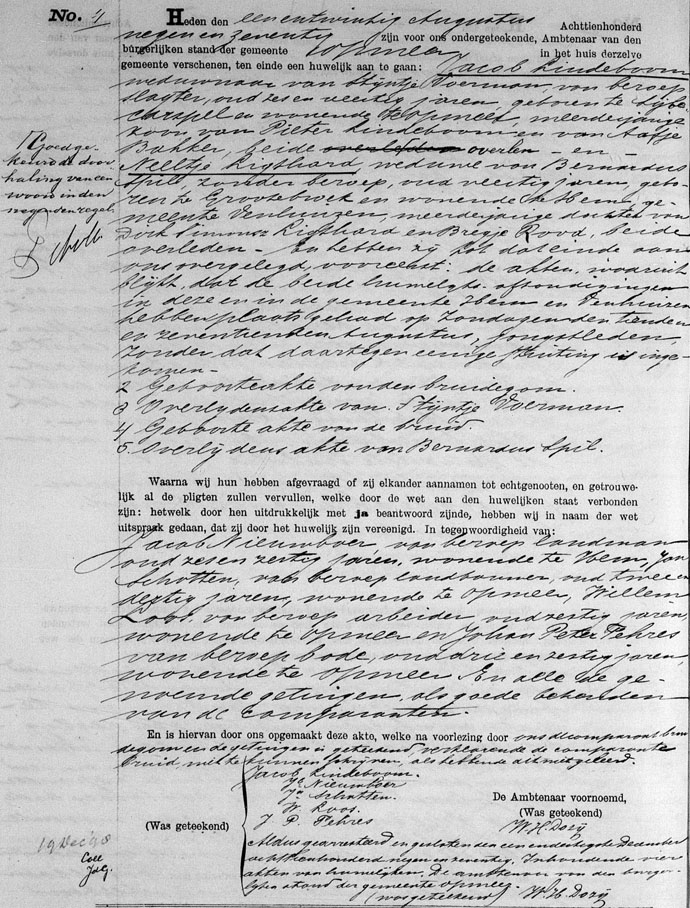 No. 4
Heden den een en twintig Augustus Achttienhonderd
negen en zeventig zijn voor ons ondergeteekende, Ambtenaar van den
burgerlijken stand der gemeente Opmeer in het huis derzelve
gemeente verschenen, ten einde een huwelijk aan te gaan: Jacob Lindeboom
weduwnaar van Stijntje Voerman, van beroep
slagter, oud zes en veertig jaren, geboren te Sijbe
carspel en wonende te Opmeer, meerderjarige
zoon van Pieter Lindeboom en van Aafje
Bakker, beide overleden overlen - en -
Neeltje Ligthard weduwe van Bernardus
Spil, zonder beroep, oud veertig jaren, gebo-
ren te Grootebroek en wonende te Hem, ge-
meente Venhuizen, meerderjarige dochter van
Dirk Simonsz Ligthard en Bregje Rood, beide
overleden - En hebben zij tot dat einde aan
ons overgelegd, vooreerst: de akten, waaruit
blijkt, dat de beide huwelijks afkondigingen
in deze en in de gemeente Hem en Venhuizen
hebben plaats gehad op Zondagen den tienden
en zeventienden Augustus, jongstleden
zonder dat daartegen eenige stuiting is inge-
komen -
2 Geboorteakte van den bruidegom.
3 Overlijdensakte van Stijntje Voerman.
4 Geboorte akte van de bruid.
5. Overlijdens akte van Bernardus Spil.
Goedge-
keurd de door
haling van een
woord in den
negenden regel
Waarna wij hun hebben afgevraagd of zij elkander aannamen tot echtgenooten, en getrouwe-
lijk al de pligten zullen vervullen, welke door de wet aan den huwelijken staat verbonden
zijn: hetwelk door hen uitdrukkelijk met ja beantwoord zijnde, hebben wij in naam der wet
uitspraak gedaan, dat zij door het huwelijk zijn vereenigd. In tegenwoordigheid van:
Jacob Nieuwboer, van beroep landman
oud zes en zestig jaren, wonende te Hem, Jan
Schotten, van beroep landbouwer, oud twee en
dertig jaren, wonende te Opmeer, Willem
Loos, van beroep arbeider, oud zestig jaren,
wonende te Opmeer en Johan Peter Fehres
van beroep bode, oud drie en zestig jaren,
wonende te Opmeer En alle de ge-
noemde getuigen, als goede bekenden
van de comparanten.
En is hiervan door ons opgemaakt deze akte, welke na voorlezing door ons de comparant brui
degom en de getuigen is geteekend verklarende de comparante
bruid niet te kunnen schrijven, als hebbende dit niet geleerd.
Jacob Lindeboom.
Jb Nieuwboer
Jn Schotten.
W. Loos.
J P. Fehres
(Was geteekend)
De Ambtenaar voornoemd,
(Was geteekend)
W. H. Dozij
Aldus gearresteerd en gesloten den een en dertigste December
achttienhonderd negen en zeventig. Inhoudende vier
akten van huwelijken. De ambtenaar van den burger-
lijken stand der gemeente Opmeer
(was geteekend) W. H Dozij
19 Dec '98
Coll